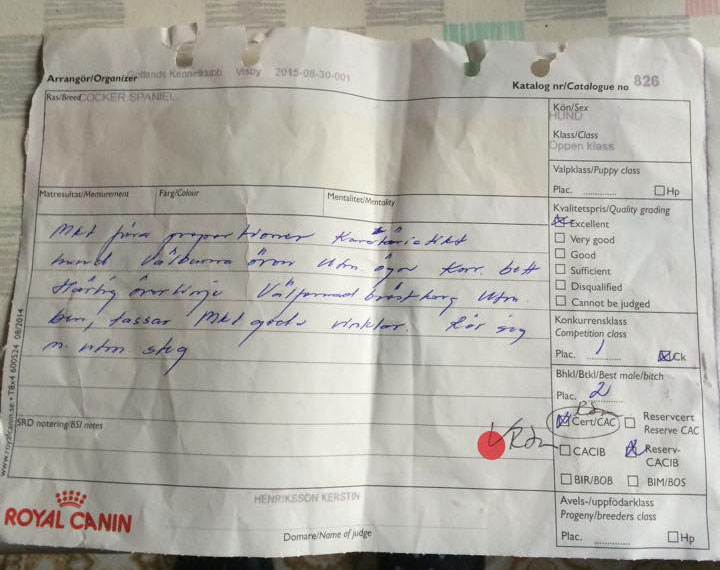 Arrangör/Organizer Gotlands Kennelklubb Visby 2015-08-30-001
Katalog nr/Catalogue no 826
Ras/Breed COCKER SPANIEL
Kön/Sex
HUND
Klass/Class
Öppen klass
Valpklass/Puppy class
Plac. ........... Hp
Matresultat/Measurement Färg/Colour Mentalitet/Mentality
Kvalitetspris/Quality grading
Excellent
Very good
Good
Sufficient
Disqualified
Cannot be judged
Mkt fina proportioner
hund Välburna öron Utm. ögon Korr. bett
Härlig överlinje Välformad bröstkorg Utm.
ben, tassar Mkt goda vinklar. Rör sig
m. utm steg
Konkurrensklass
Competition class
Plac. 1 Ck
Bhkl/Btkl/Best male/bitch
Plac. 2
Cert/CAC
Reservcert
Reserve CAC
CACIB
Reserv-
CACIB
BIR/BOB BIM/BOS
SRD notering/BSI notes
www.royalcanin.se • T8x4 600524 08/2014
ROYAL CANIN
HENRIKSSON KERSTIN
Domare/Name of judge
Avels-/uppfödarklass
Progeny/breeders class
Plac. ........... Hp